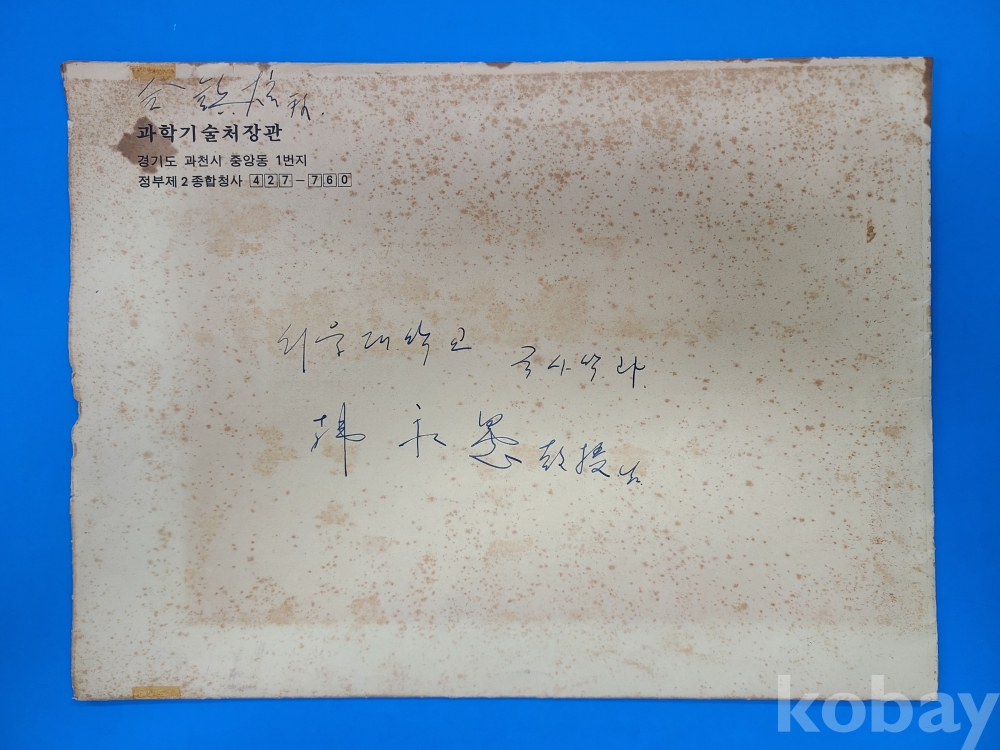 金鎭炫 ​拜.
과학기술처장관
경기도 과천시 중앙동 1번지
정부제2종합청사 427-760
서울대학교 국사학과
韓永愚 敎授님
kobay